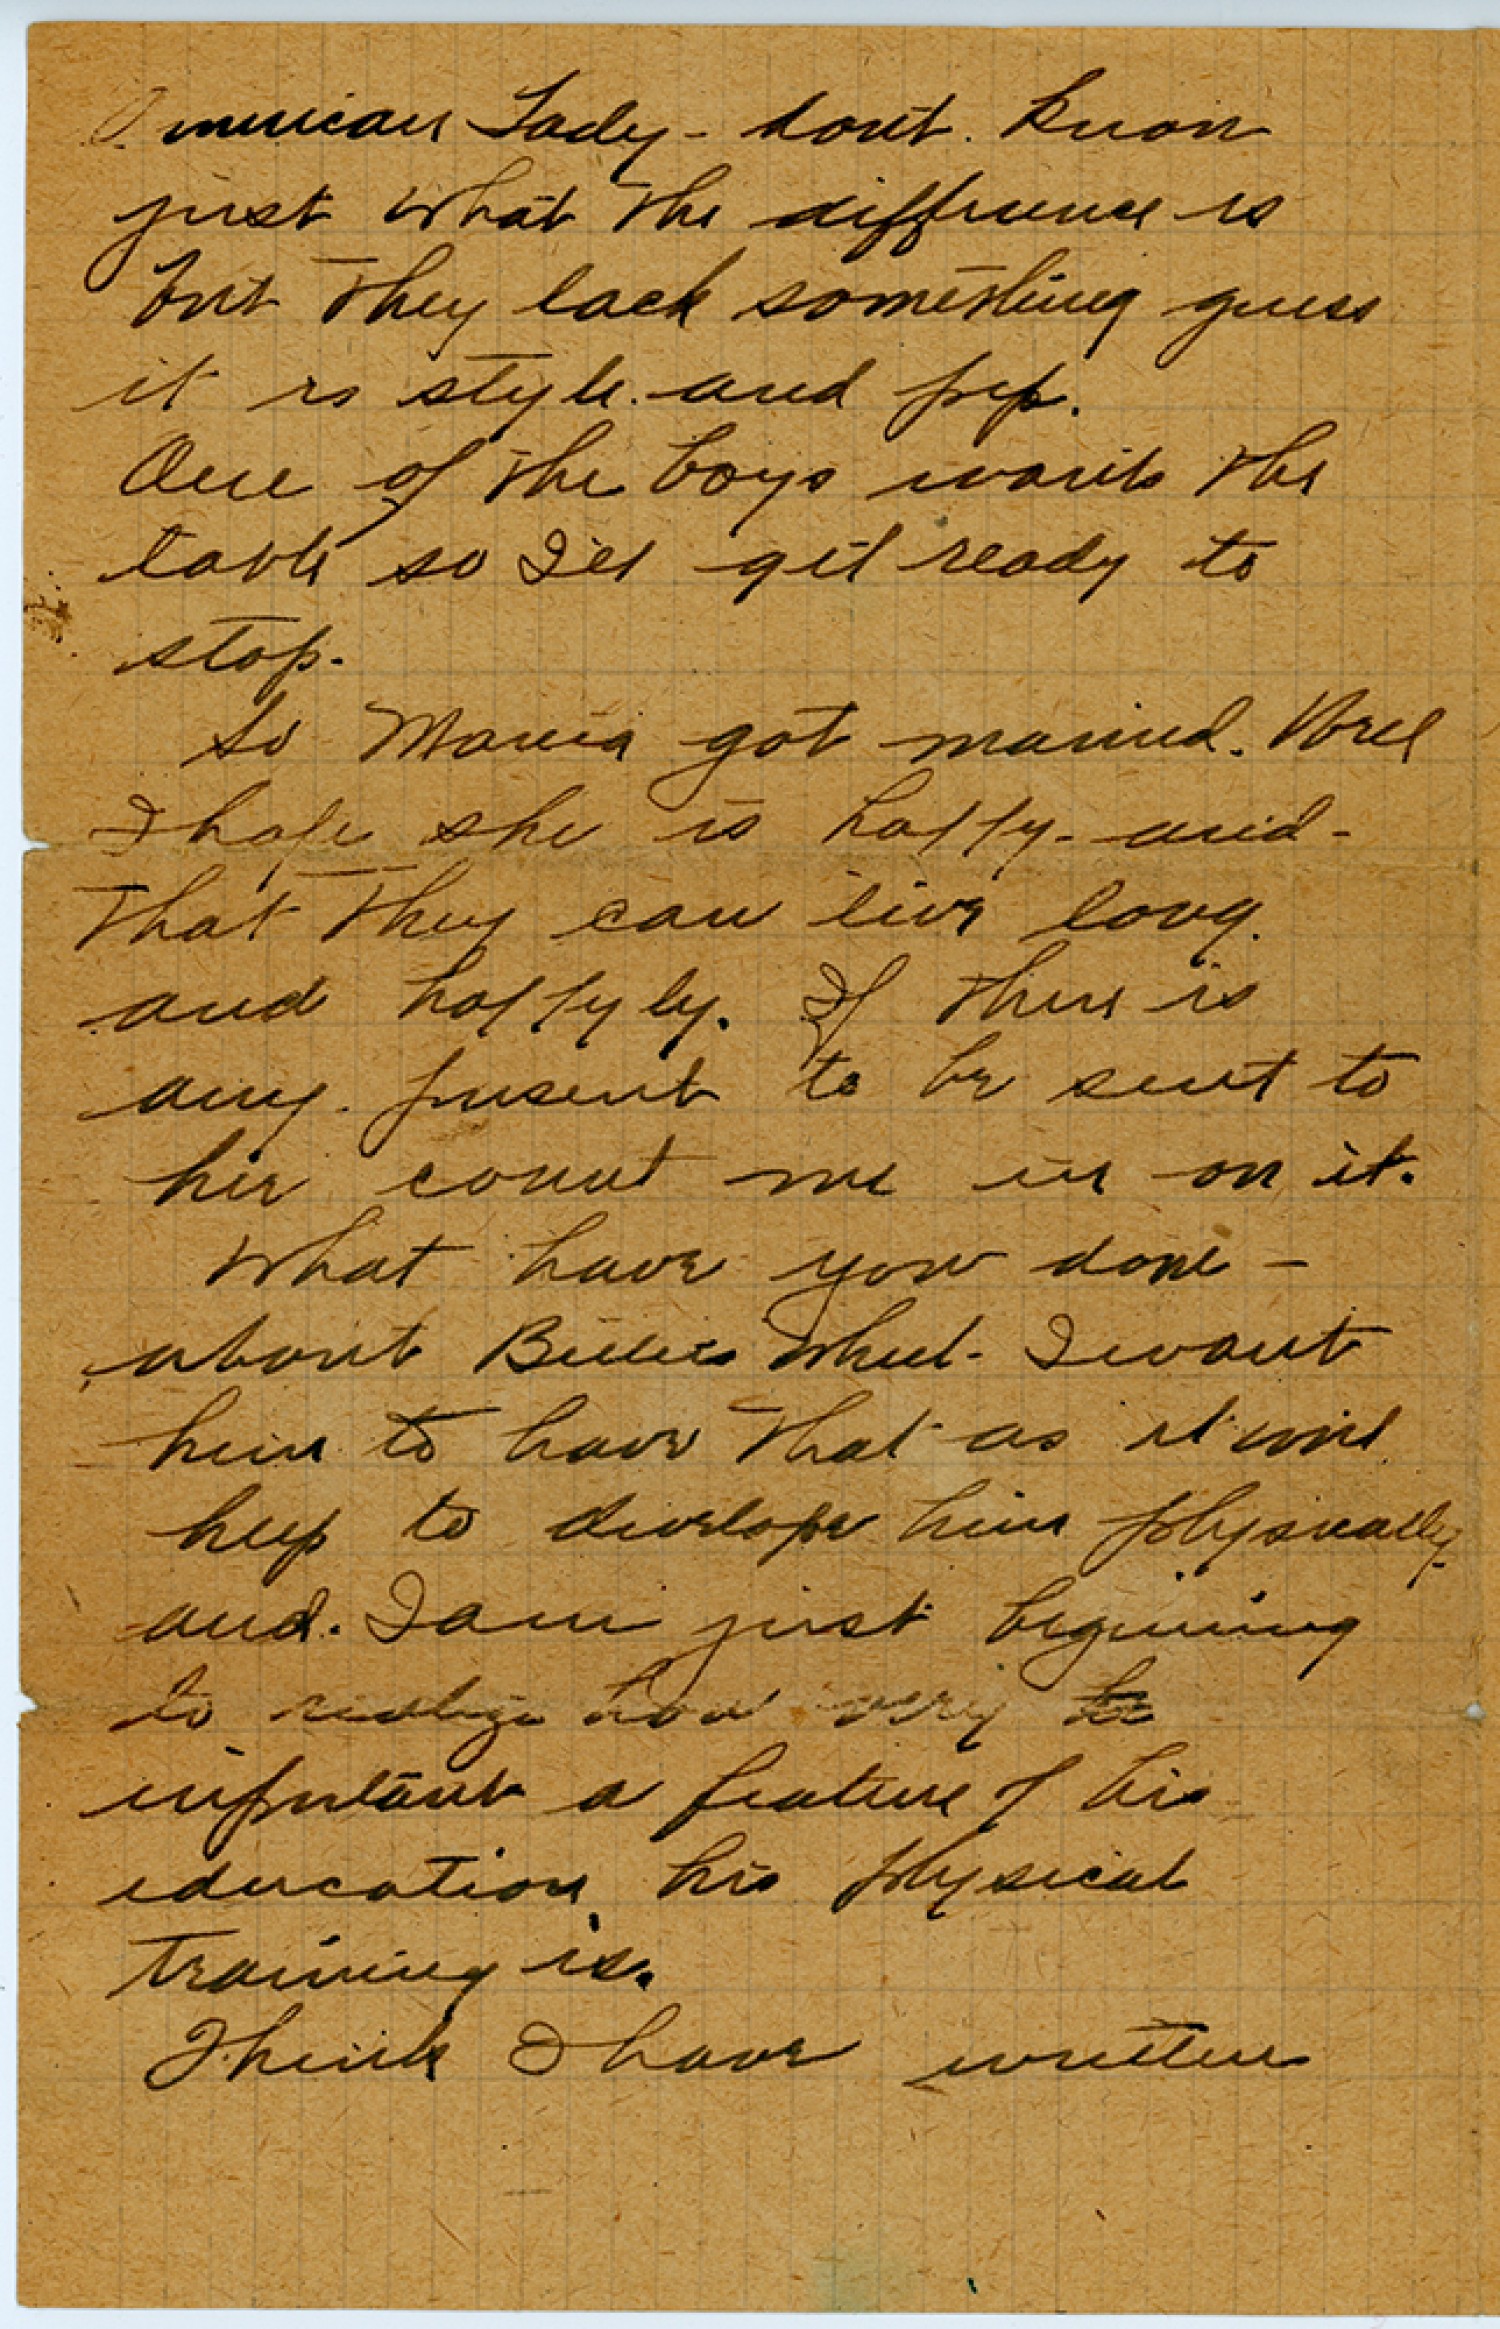 American Lady - dont know
just what the diffrence is
but they lack something guess
it is style and pep.
One of the boys wants the
table so I'll get ready to
stop.
So Maria got married. Well
I hope she is happy - and -
that they can live long
and happyly. If there is
any present to be sent to
her count me in on it.
What have you done -
about Billies wheel - I want
him to have that as it will
help to develope him physically
and I am just begining
to realize how very
important a feature of his
education his physical
training is.
Think I have written